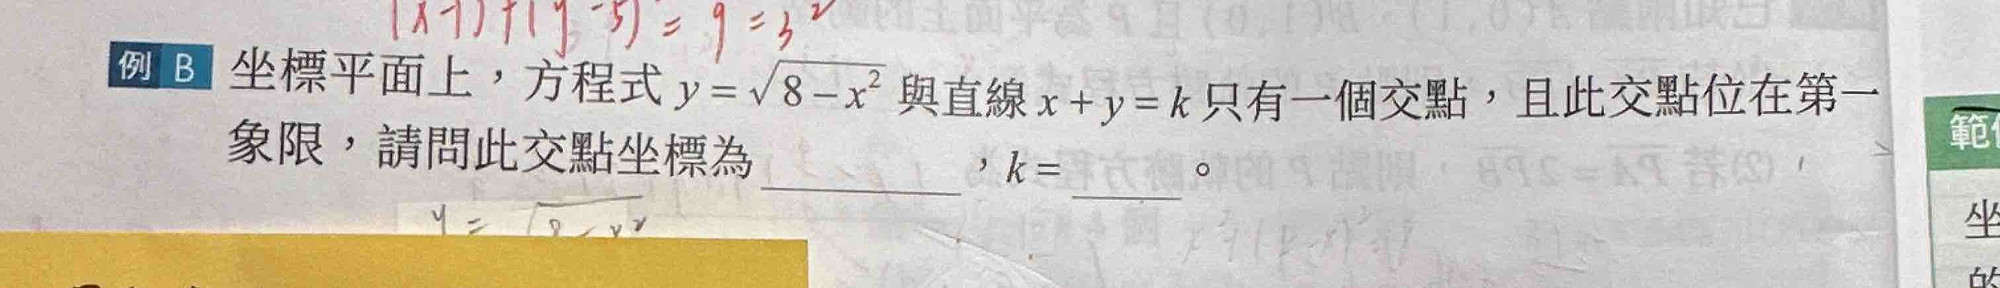 (x-1)²+(y-5)²=9=3²
例 B 坐標平面上，方程式 y = √(8 − x²) 與直線 x + y = k 只有一個交點，且此交點位在第一
象限，請問此交點坐標為＿＿＿＿＿，k = ＿＿＿。
y = √8-x²
範
坐
的